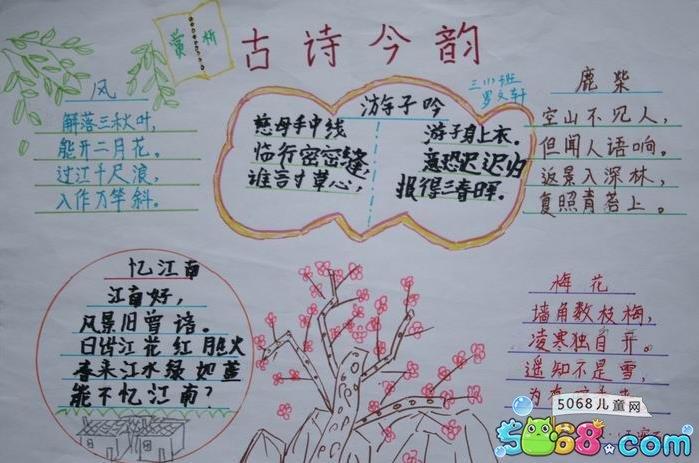 赏析
古诗今韵
三(1)班
风
解落三秋叶,
能开二月花。
过江千尺浪,
入作万竿斜。
游子吟
慈母手中线
游子身上衣。
临行密密缝
意恐迟迟归
谁言寸草心,
报得三春晖。
鹿柴
空山不见人,
但闻人语响。
返景入深林,
复照青苔上。
忆江南
江南好,
风景旧曾谙。
日出江花红胜火
春来江水绿如蓝
能不忆江南?
梅花
墙角数枝梅,
凌寒独自开。
遥知不是雪,
为有
5068儿童网
5068.com